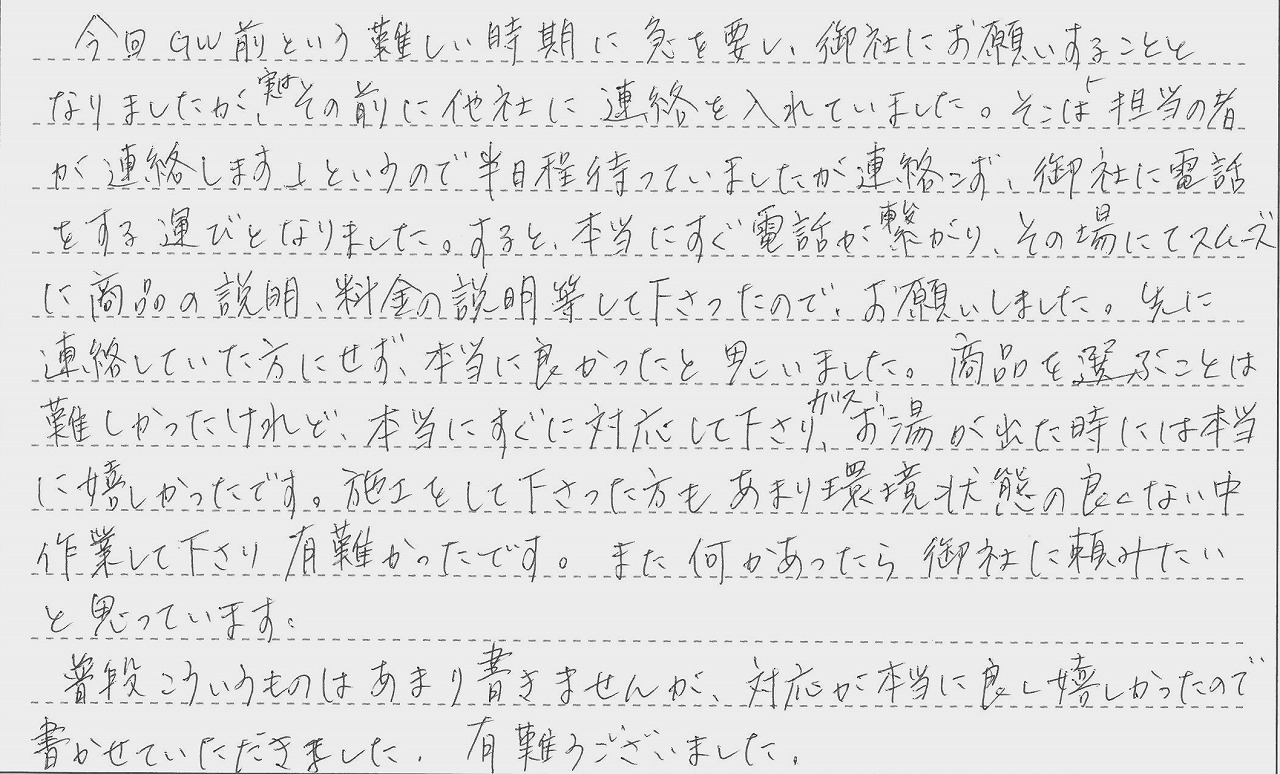 今回GW前という難しい時期に急を要し、御社にお願いすることと
なりましたが、実はその前に他社に連絡を入れていました。そこは「担当の者
が連絡します」というので半日程待っていましたが連絡こず、御社に電話
をする運びとなりました。すると、本当にすぐ電話が繋がり、その場にてスムーズ
に商品の説明、料金の説明等して下さったので、お願いしました。先に
連絡していた方にせず、本当に良かったと思いました。商品を選ぶことは
難しかったけれど、本当にすぐに対応して下さり、ガス、お湯が出た時には本当
に嬉しかったです。施工をして下さった方もあまり環境状態の良くない中
作業して下さり有難かったです。また何かあったら御社に頼みたい
と思っています。
普段こういうものはあまり書きませんが、対応が本当に良く嬉しかったので
書かせていただきました。有難うございました。